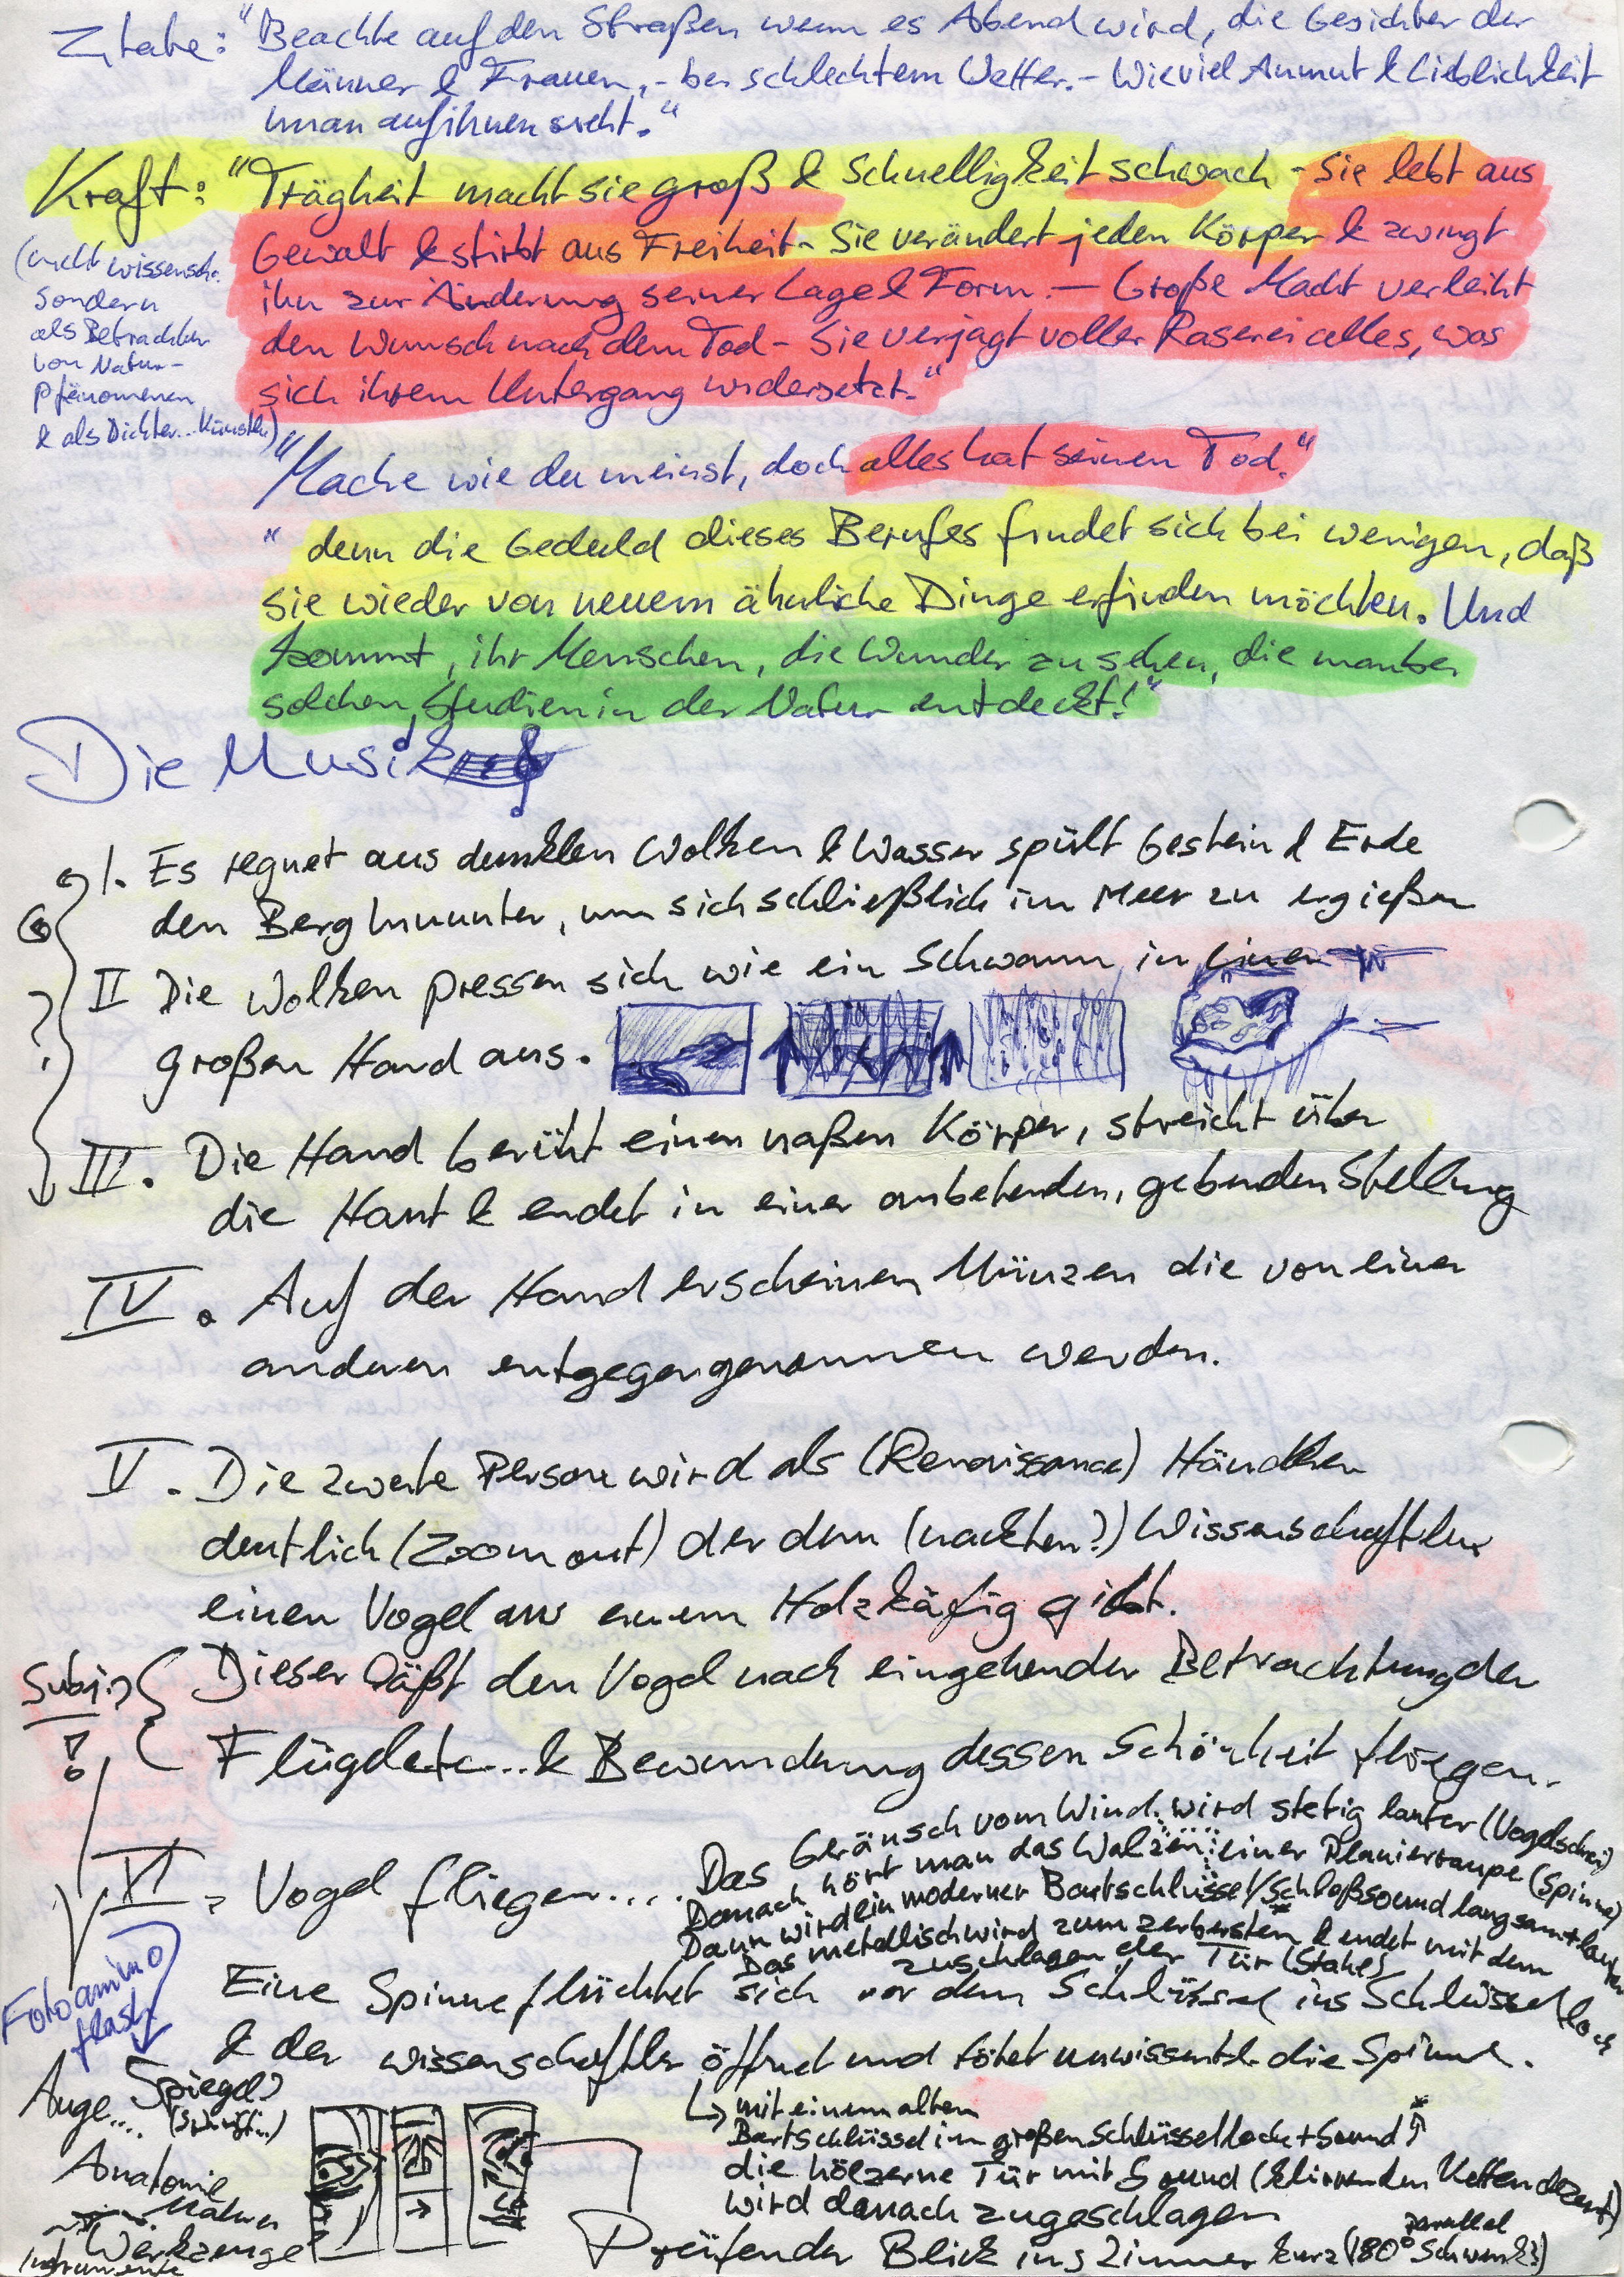 Zitate: "Beachte auf den Straßen wenn es Abend wird, die Gesichter der
Männer & Frauen, - bei schlechtem Wetter. - Wieviel Anmut & Lieblichkeit
man auf ihnen sieht."
Kraft: "Trägheit macht sie groß & Schnelligkeit schwach - Sie lebt aus
Gewalt & stirbt aus Freiheit - Sie verändert jeden Körper & zwingt
ihn zur Änderung seiner Lage & Form. - Große Macht verleiht
den Wunsch nach dem Tod - Sie verjagt voller Raserei alles, was
sich ihrem Untergang widersetzt."
(nicht wissensch.
sondern
als Betrachter
von Natur-
phänomenen
& als Dichter... Künstler)
"Mache wie du meinst, doch alles hat seinen Tod."
"denn die Geduld dieses Berufes findet sich bei wenigen, daß
sie wieder von neuem ähnliche Dinge erfinden möchten. Und
kommt, ihr Menschen, die Wunder zu sehen, die man bei
solchen Studien in der Natur entdeckt!"
Die Musik
1. Es regnet aus dunklen Wolken & Wasser spült Gestein & Erde
den Berg hinunter, um sich schließlich im Meer zu ergießen
II Die Wolken pressen sich wie ein Schwamm in einer
großen Hand aus.
III. Die Hand berührt einen naßen Körper, streicht über
die Haut & endet in einer anbetenden, gebenden Stellung
IV. Auf der Hand erscheinen Münzen die von einer
anderen entgegengenommen werden.
V. Die zweite Person wird als (Renaissance) Händler
deutlich (Zoom out) der dem (nackten?) Wissenschaftler
einen Vogel aus einem Holzkäfig gibt.
Subj.?
Dieser läßt den Vogel nach eingehender Betrachtung der
Flügel etc... & Bewunderung dessen Schönheit fliegen.
VI. Vogel fliegen....
Das Geräusch vom Wind wird stetig lauter (Vogelschrei)
Danach hört man das Walzen einer Planierraupe (Spinne)
Dann wird ein moderner Bartschlüssel/Schloßsound langsam + lauter
Das metallisch wird zum zerbersten & endet mit dem
zuschlagen der Tür (Stahl)
Eine Spinne flüchtet sich vor dem Schlüssel ins Schlüsselloch
& der Wissenschaftler öffnet und tötet unwissentl. die Spinne.
Foto animo
flash
Auge.... Spiegel?
Anatomie
Natur
Werkzeuge
Instrumente
mit einem alten
Bartschlüssel im großen Schlüsselloch + Sound
die hölzerne Tür mit Sound (klirrenden Ketten dezent)
wird danach zugeschlagen
Prüfender Blick ins Zimmer kurz (180° parallel Schwenk?)